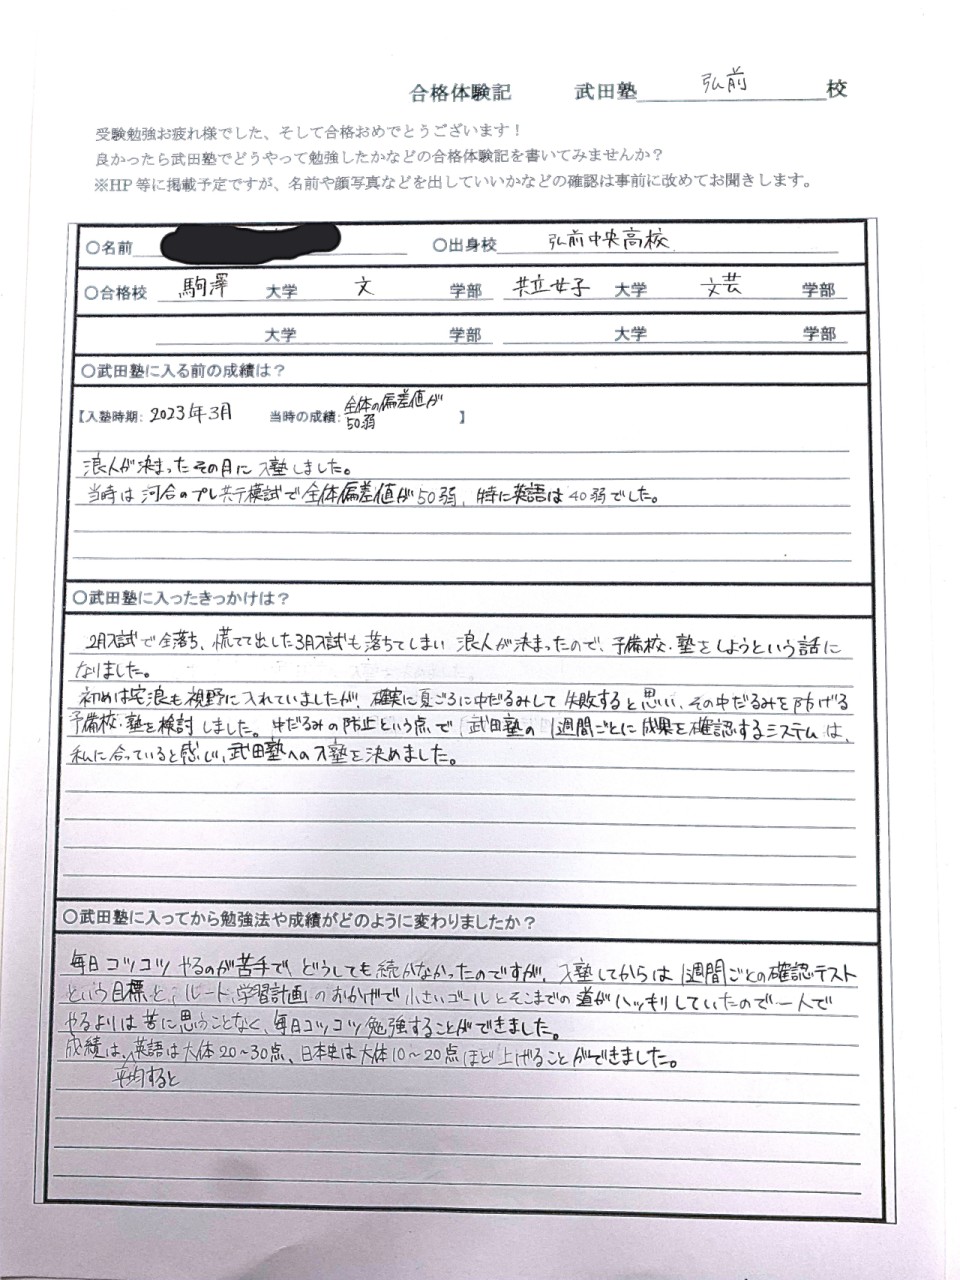 合格体験記 武田塾 弘前 校
受験勉強お疲れ様でした、そして合格おめでとうございます！
良かったら武田塾でどうやって勉強したかなどの合格体験記を書いてみませんか？
※HP等に掲載予定ですが、名前や顔写真などを出していいかなどの確認は事前に改めてお聞きします。
○名前 ○出身校 弘前中央高校
○合格校 駒澤 大学 文 学部 共立女子 大学 文芸 学部
大学 学部 大学 学部
○武田塾に入る前の成績は？
【入塾時期: 2023年3月 当時の成績: 全体の偏差値が
50弱 】
浪人が決まったその月に入塾しました。
当時は河合のプレ共テ模試で全体偏差値が50弱、特に英語は40弱でした。
○武田塾に入ったきっかけは？
2月入試で全落ち、慌てて出した3月入試も落ちてしまい浪人が決まったので、予備校・塾をしようという話に
なりました。
初めは宅浪も視野に入れていましたが、確実に夏ごろに中だるみして失敗すると思い、その中だるみを防げる
予備校・塾を検討しました。中だるみの防止という点で武田塾の1週間ごとに成果を確認するシステムは、
私に合っていると感じ、武田塾への入塾を決めました。
○武田塾に入ってから勉強法や成績がどのように変わりましたか？
毎日コツコツやるのが苦手で、どうしても続かなかったのですが、入塾してからは1週間ごとの確認テスト
という目標と、ルート、学習計画のおかげで小さいゴールとそこまでの道がハッキリしていたので一人で
やるよりは苦に思うことなく、毎日コツコツ勉強することができました。
成績は、英語は大体20～30点、日本史は大体10～20点ほど上げることができました。
平均すると